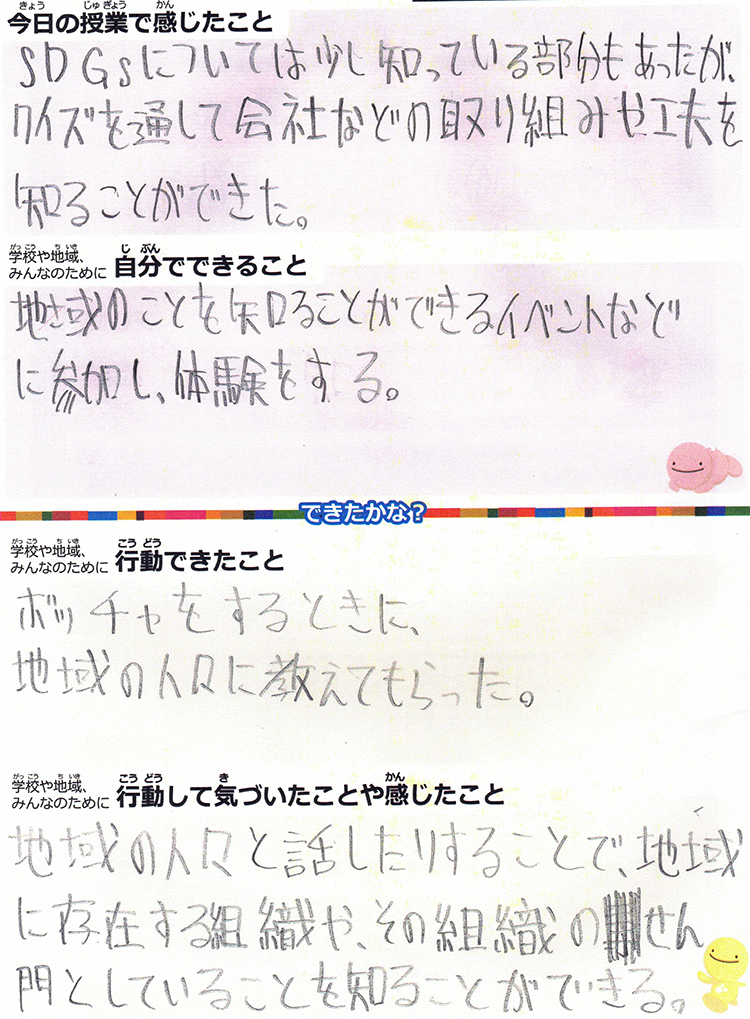 今日の授業で感じたこと
SDGsについては少し知っている部分もあったが、
クイズを通して会社などの取り組みや工夫を
知ることができた。
学校や地域、みんなのために 自分でできること
地域のことを知ることができるイベントなど
に参加し、体験をする。
できたかな？
学校や地域、みんなのために 行動できたこと
ボッチャをするときに、
地域の人々に教えてもらった。
学校や地域、みんなのために 行動して気づいたことや感じたこと
地域の人々と話したりすることで、地域
に存在する組織や、その組織のせん
門としていることを知ることができる。